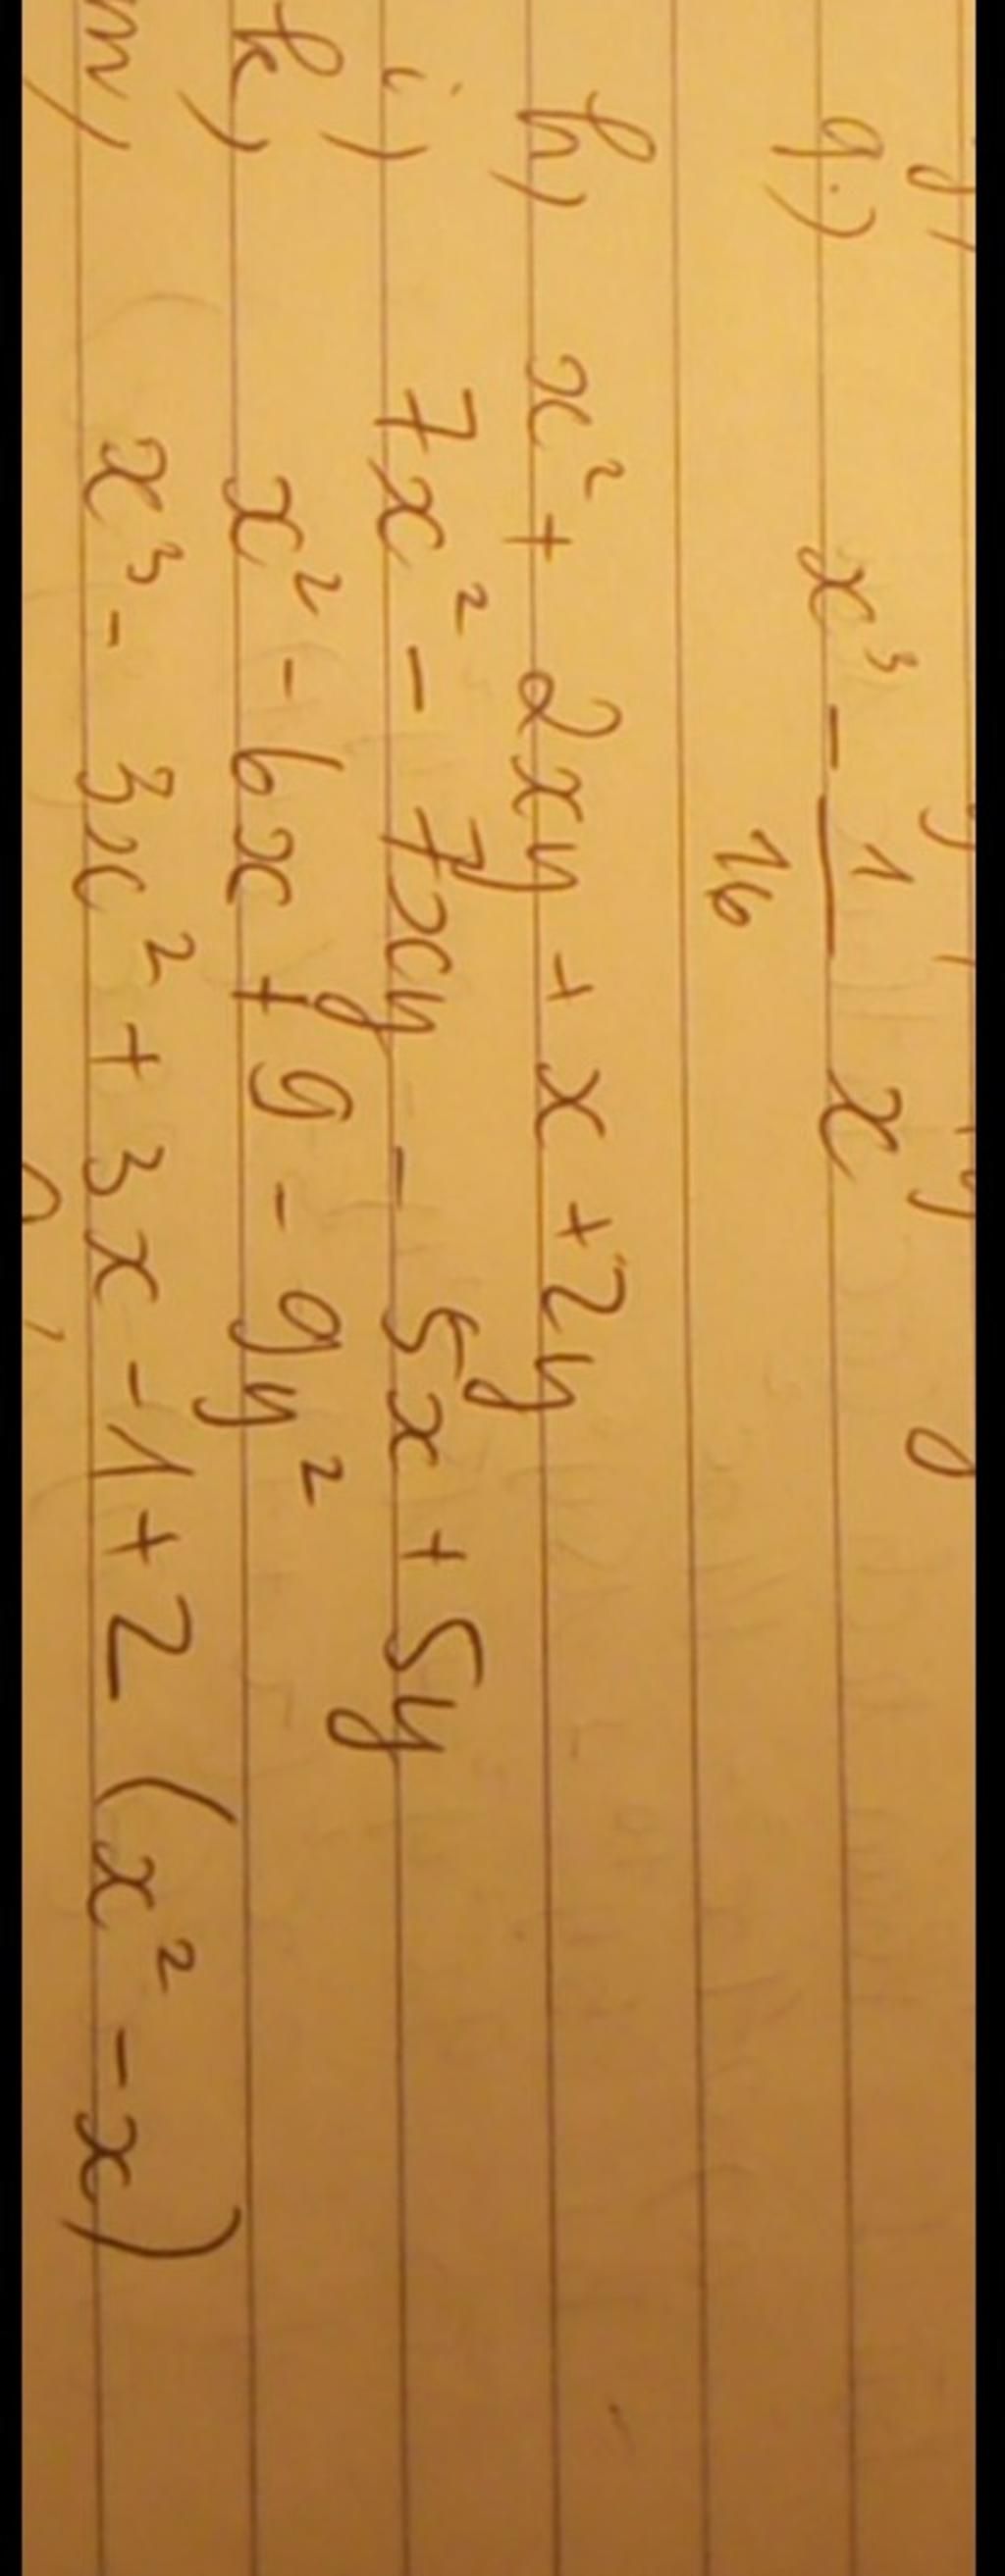 g.) x³ - 1/16 x
h) x² + 2xy + x + 2y
i) 7x² - 7xy - 5x + 5y
k) x² - 6x + 9 - 9y²
m) x³ - 3x² + 3x - 1 + 2 (x² - x)